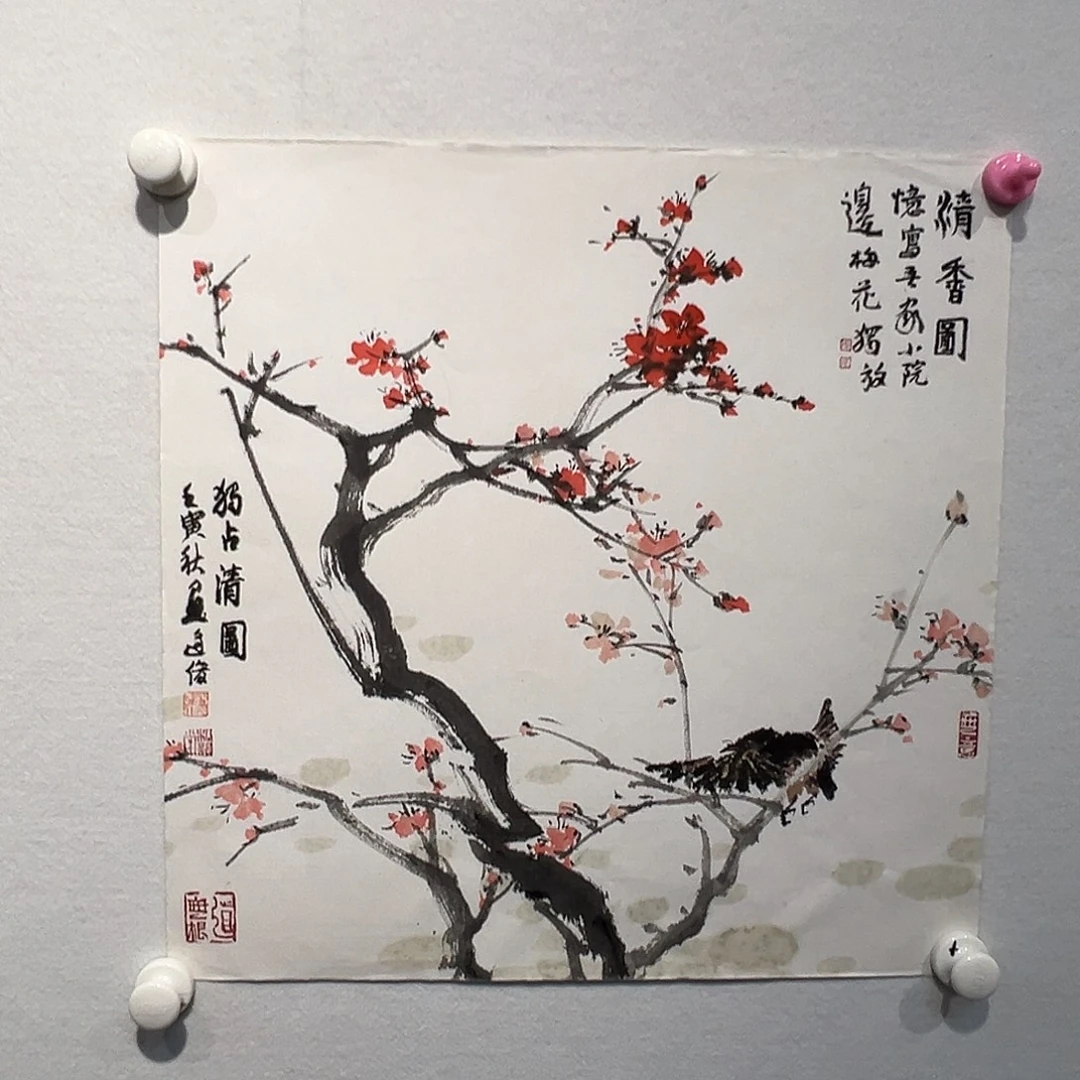 清香圖
憶寫吾家小院
邊梅花獨放
獨占清圖
壬寅秋畫